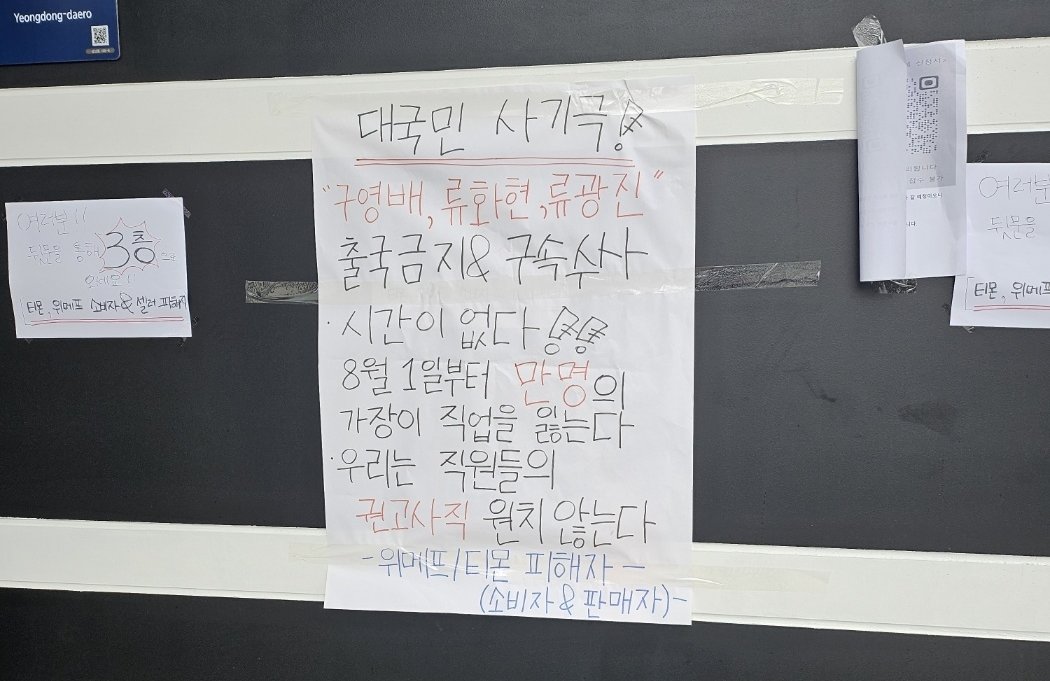 Yeongdong-daero
대국민 사기극!
"구영배, 류화현, 류광진"
출국금지& 구속수사
· 시간이 없다 !!
8월 1일부터 만명의
가장이 직업을 잃는다
· 우리는 직원들의
권고사직 원치 않는다
- 위메프/티몬 피해자 -
(소비자&판매자)-
여러분!!
뒷문을 통해 3층으로
티몬, 위메프 소비자&셀러 피해자
여러분
뒷문을
티몬, 위메프